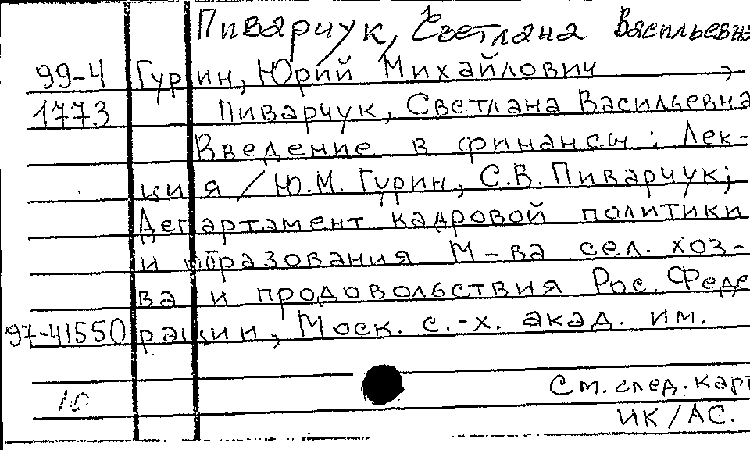 Пиварчук, Светлана Васильевна
99-4 Гурин, Юрий Михайлович
1773 Пиварчук, Светлана Васильевна
Введение в финансы: Лек-
ция / Ю.М. Гурин, С.В. Пиварчук;
Департамент кадровой политики
и образования М-ва сел. хоз-
ва и продовольствия Рос. Феде
97-41550 рации, Моск. с.-х. акад. им.
См. след. карт
10
ИК/АС.